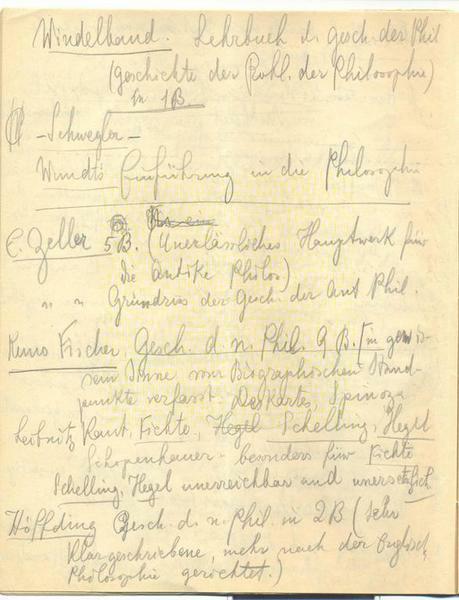 Windelband. Lehrbuch d. gesch. der Phil
(geschichte der Probl. der Philosophie)
in 1B
- Schwegler -
Wundt's Einführung in die Philosophie
E. Zeller 5 B. (Unerlässliches Hauptwerk für
die Antike Philos)
" " Grundriss der Gesch. der Ant Phil.
Kuno Fischer, Gesch. d. n. Phil. 9 B. (in gewis-
sem Sinne vom Biographischen Stand-
punkte verfasst. Deskartes, Spinoza
Leibnitz Kant, Fichte, Hegel Schelling, Hegel
Schopenhauer - besonders für Fichte
Schelling, Hegel unerreichbar und unersetzlich.
Höffding Gesch. d. n. Phil. in 2B (sehr
klar geschriebene, mehr nach der Englisch.
Philosophie gerichtet.)